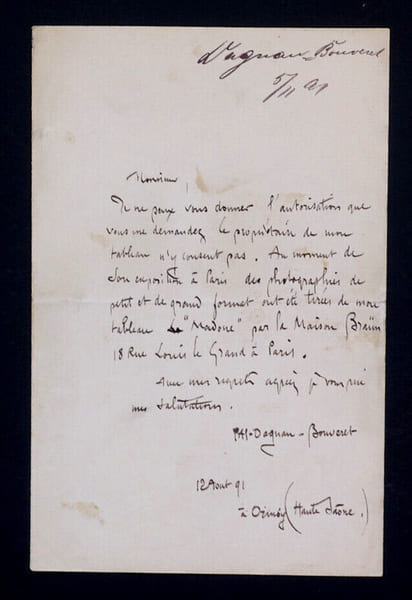 Dagnan-Bouveret
5/11 91
Monsieur,
Je ne peux vous donner l'autorisation que
vous me demandez le propriétaire de mon
tableau n'y consent pas. Au moment de
Son exposition à Paris des photographies de
petit et de grand format ont été tirées de mon
tableau "Madone" par la Maison Braün
18 Rue Louis le Grand à Paris.
mes regrets agréez je vous prie
mes salutations.
PAJ-Dagnan-Bouveret
12 Aout 91
à Ormoy (Haute Saône.)